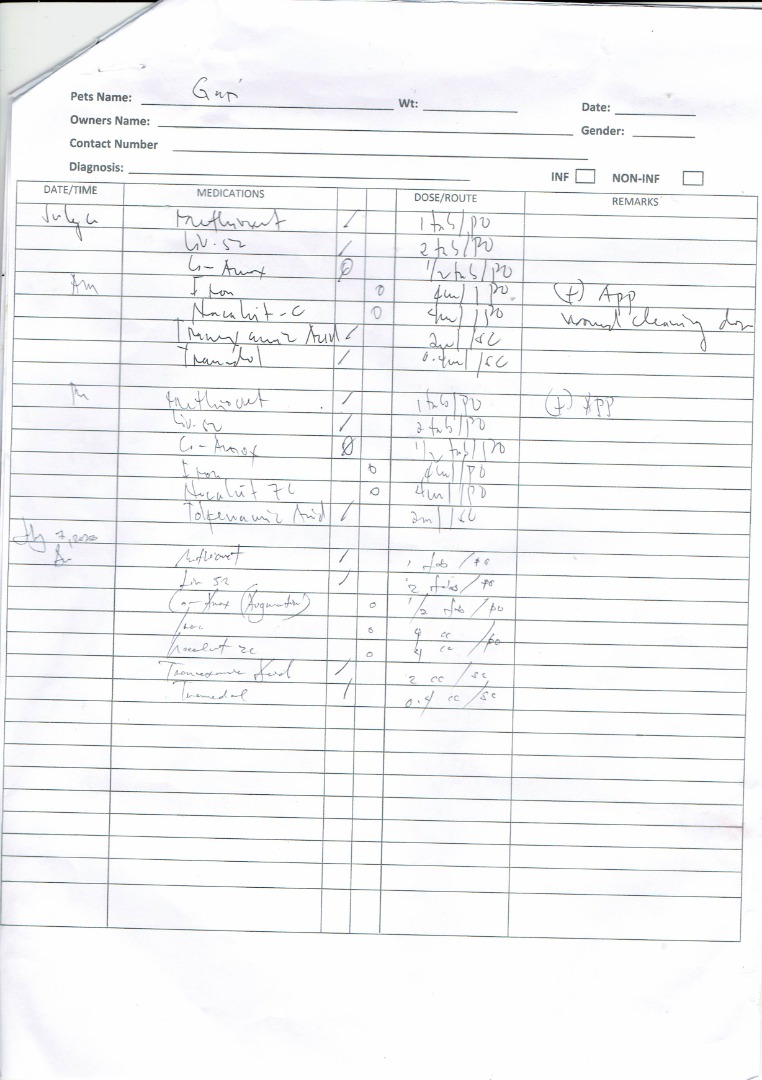 Pets Name: Wt: Date:
Owners Name: Gender:
Contact Number
Diagnosis: INF NON-INF
DATE/TIME MEDICATIONS DOSE/ROUTE REMARKS
July 6 / 1 tab/po
Liv-52 / 2 tab/po
Co-Amox 1/2 tab/po
Am Iron o 4ml/po (+) App
o 4ml/po wound cleaning done
Tranexamic Acid / 2ml/SC
Tramadol / 0.4ml/SC
Pm / 1 tab/po (+) App
Liv-52 / 2 tab/po
Co-Amox 1/2 tab/po
Iron o 4ml/po
o 4ml/po
Acid / 2ml/SC
7,
/ 1 tab/po
Liv 52 / 2 tabs/po
Co-Amox (Augmentin) o 1/2 tab/po
o 4 cc
o 4 cc /po
Tranexamic Acid / 2 cc/sc
Tramadol / 0.4 cc/sc